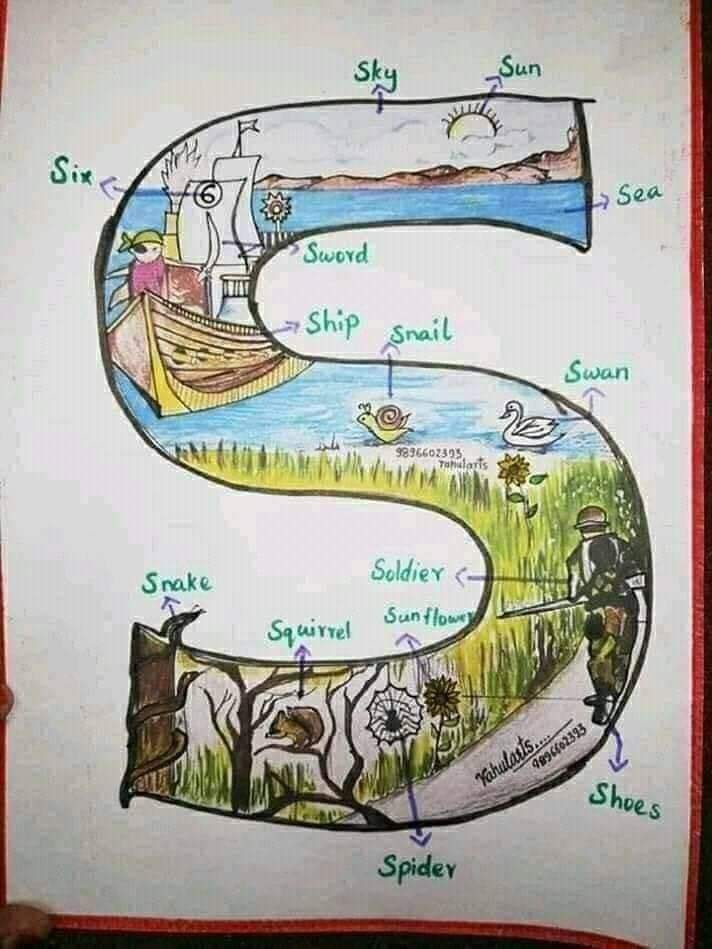 Sky
Sun
Six
6
Sea
Sword
Ship
Snail
Swan
9896602393
rahularts
Soldier
Snake
Squirrel
Sunflower
Rahularts....
9896602393
Shoes
Spider